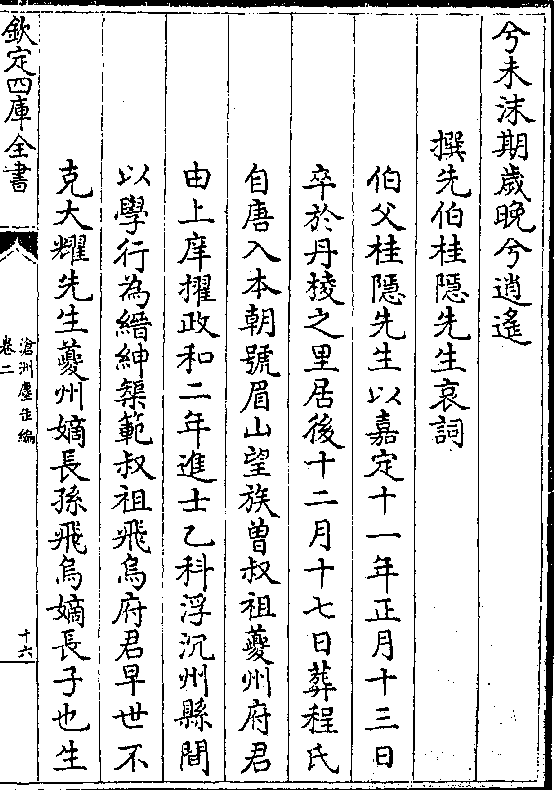 兮未沫期歲晚兮逍遙
撰先伯桂隱先生哀詞
伯父桂隱先生以嘉定十一年正月十三日
卒於丹棱之里居後十二月十七日葬程氏
自唐入本朝號眉山望族曽叔祖夔州府君
由上庠擢政和二年進士乙科浮沉州縣間
以學行為縉紳榘範叔祖飛烏府君早世不
克大耀先生夔州嫡長孫飛烏嫡長子也生
欽定四庫全書
滄洲塵缶編
卷二
十六